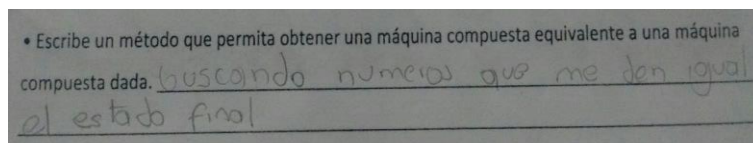 • Escribe un método que permita obtener una máquina compuesta equivalente a una máquina
compuesta dada. buscando numeros que me den igual
el estado final